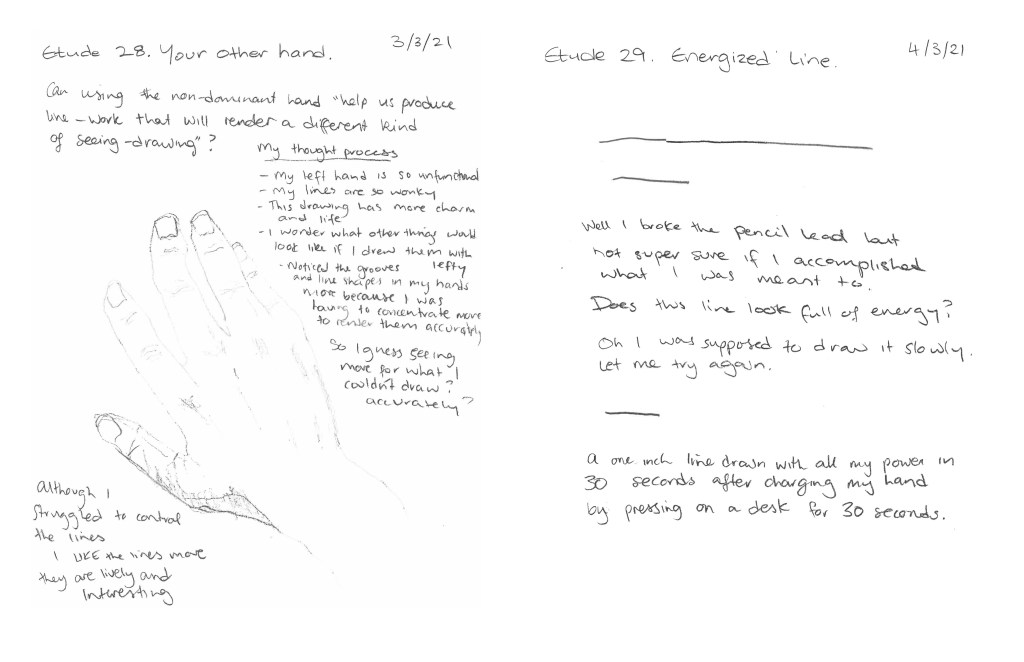 Etude 28. Your other hand.
3/3/21
Can using the non-dominant hand "help us produce
line-work that will render a different kind
of seeing-drawing"?
My thought process
- My left hand is so unfunctional
- My lines are so wonky
- This drawing has more charm
and life
- I wonder what other things would
look like if I drew them with
lefty
- Noticed the grooves
and line shapes in my hands
more because I was
having to concentrate more
to render them accurately
So I guess seeing
more for what I
couldn't draw?
accurately?
Although I
struggled to control
the lines
I LIKE the lines more
they are lively and
Interesting
Etude 29. Energized Line.
4/3/21
Well I broke the pencil lead but
not super sure if I accomplished
what I was meant to.
Does this line look full of energy?
Oh I was supposed to draw it slowly.
Let me try again.
A one inch line drawn with all my power in
30 seconds after charging my hand
by pressing on a desk for 30 seconds.